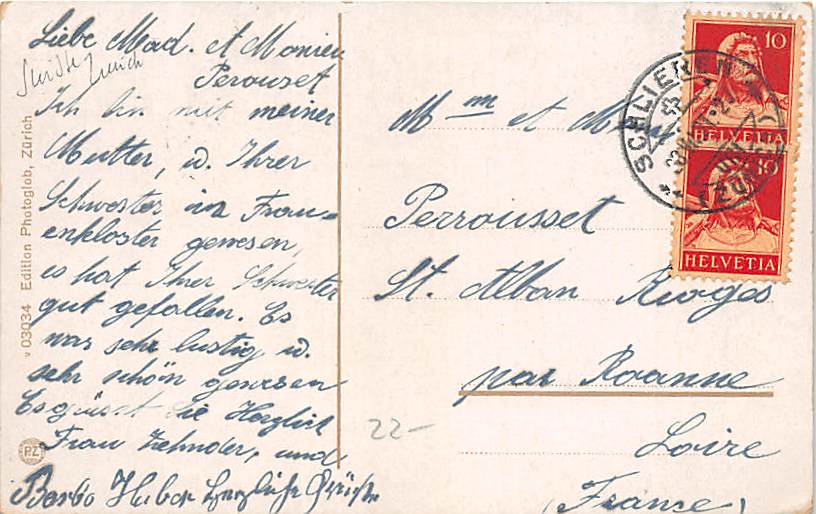 Liebe Mad. et Monieu
Perouset
Ich bin mit meiner
Mutter, u. Ihrer
Schwester in Frau-
enkloster gewesen,
es hat Ihrer Schwester
gut gefallen. Es
war sehr lustig u.
sehr schön gewesen
Es grüsst sie Herzlich
Frau Zehnder, und
Huber herzliche Grüsse
Zürich
v 03034 Edition Photoglob, Zürich
PZ
22-
M et
Perrousset
St. Alban
par Roanne
Loire
(France)
10
HELVETIA
10
HELVETIA
SCHLIEREN
(ZÜRICH)